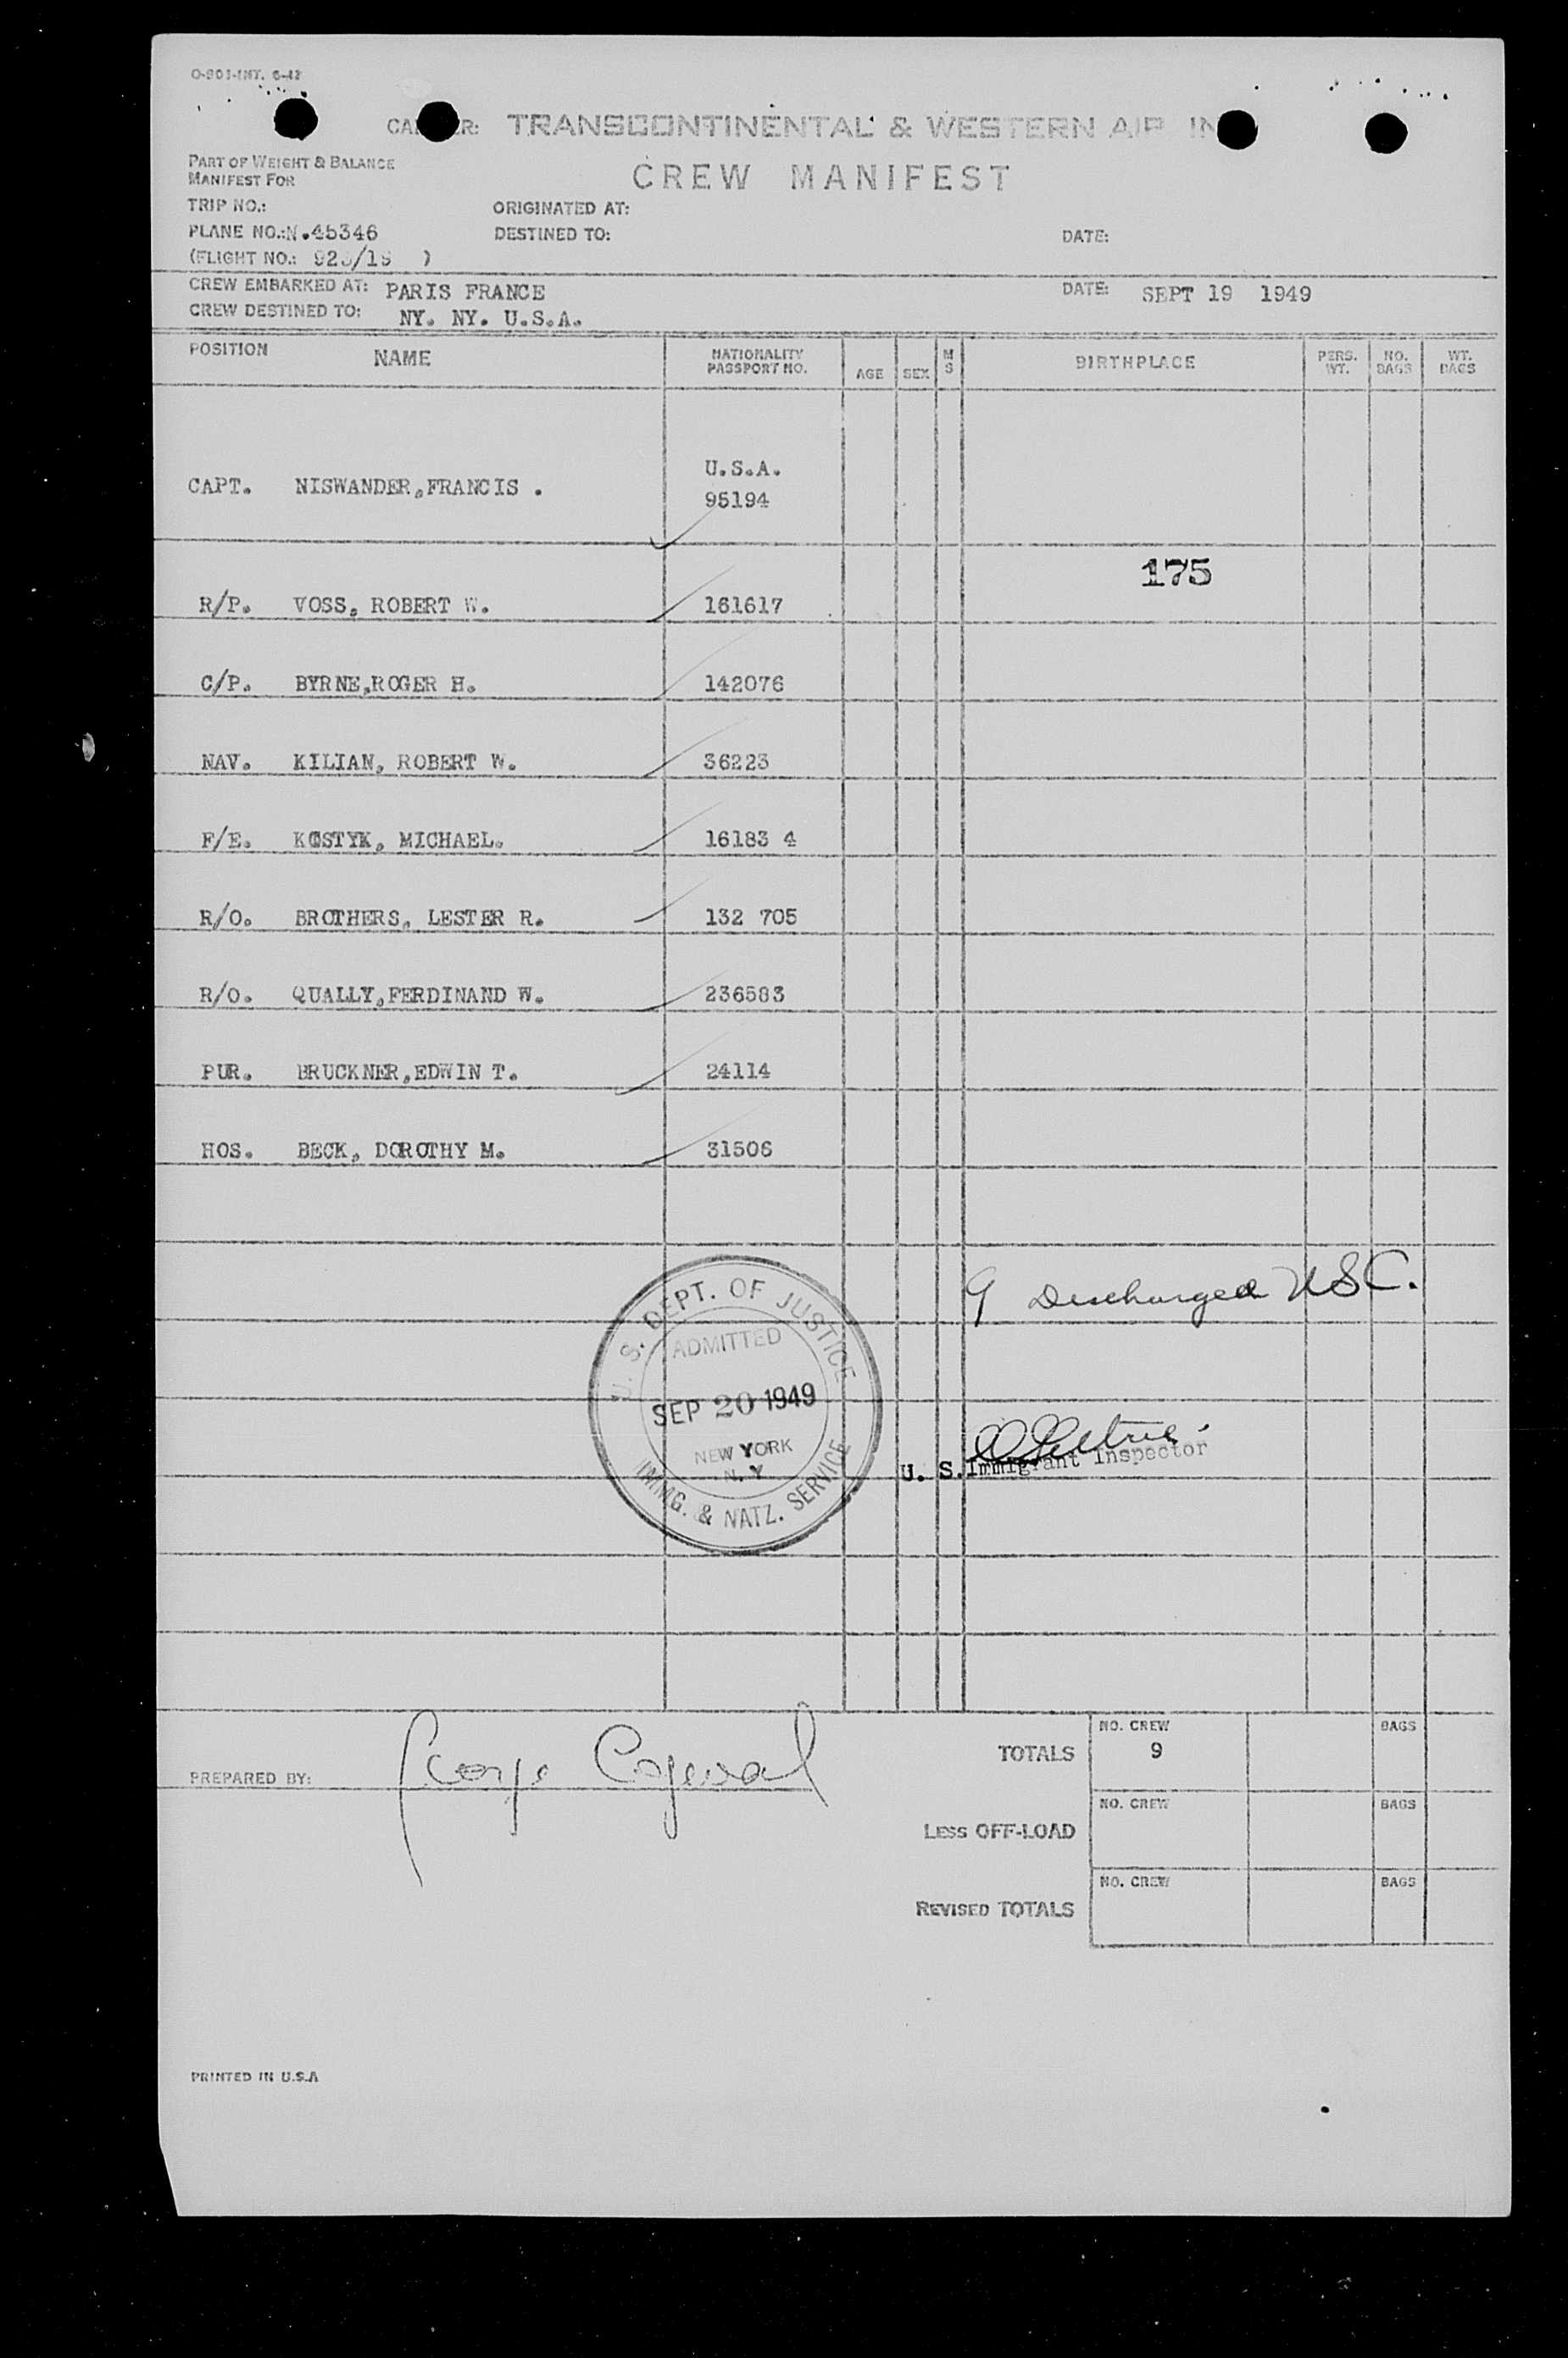 O-801-INT. 6-42
TRANSCONTINENTAL & WESTERN AIR
PART OF WEIGHT & BALANCE
MANIFEST FOR
CREW MANIFEST
TRIP NO.: ORIGINATED AT:
PLANE NO.: N.45346 DESTINED TO: DATE:
(FLIGHT NO.: )
CREW EMBARKED AT: PARIS FRANCE DATE: SEPT 19 1949
CREW DESTINED TO: NY. NY. U.S.A.
POSITION NAME NATIONALITY PASSPORT NO. AGE SEX M S BIRTHPLACE PERS. WT. NO. BAGS WT. BAGS
U.S.A.
CAPT. NISWANDER,FRANCIS . 95194
175
R/P. VOSS, ROBERT W. 161617
C/P. BYRNE,ROGER H. 142076
NAV. KILIAN, ROBERT W. 36223
F/E. KOSTYK, MICHAEL. 16183 4
R/O. BROTHERS, LESTER R. 132 705
R/O. QUALLY,FERDINAND W. 236583
PUR. BRUCKNER,EDWIN T. 24114
HOS. BECK, DOROTHY M. 31506
9 Discharged USC.
U. S. DEPT. OF JUSTICE
ADMITTED
SEP 20 1949
NEW YORK
N. Y
IMMG. & NATZ. SERVICE
U. S. Immigrant Inspector
PREPARED BY: George
TOTALS NO. CREW 9 BAGS
LESS OFF-LOAD NO. CREW BAGS
REVISED TOTALS NO. CREW BAGS
PRINTED IN U.S.A